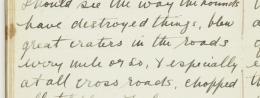 should see the way the hounds
have destroyed things, blew
great craters in the roads
every mile or so, & especially
at all cross roads, chopped